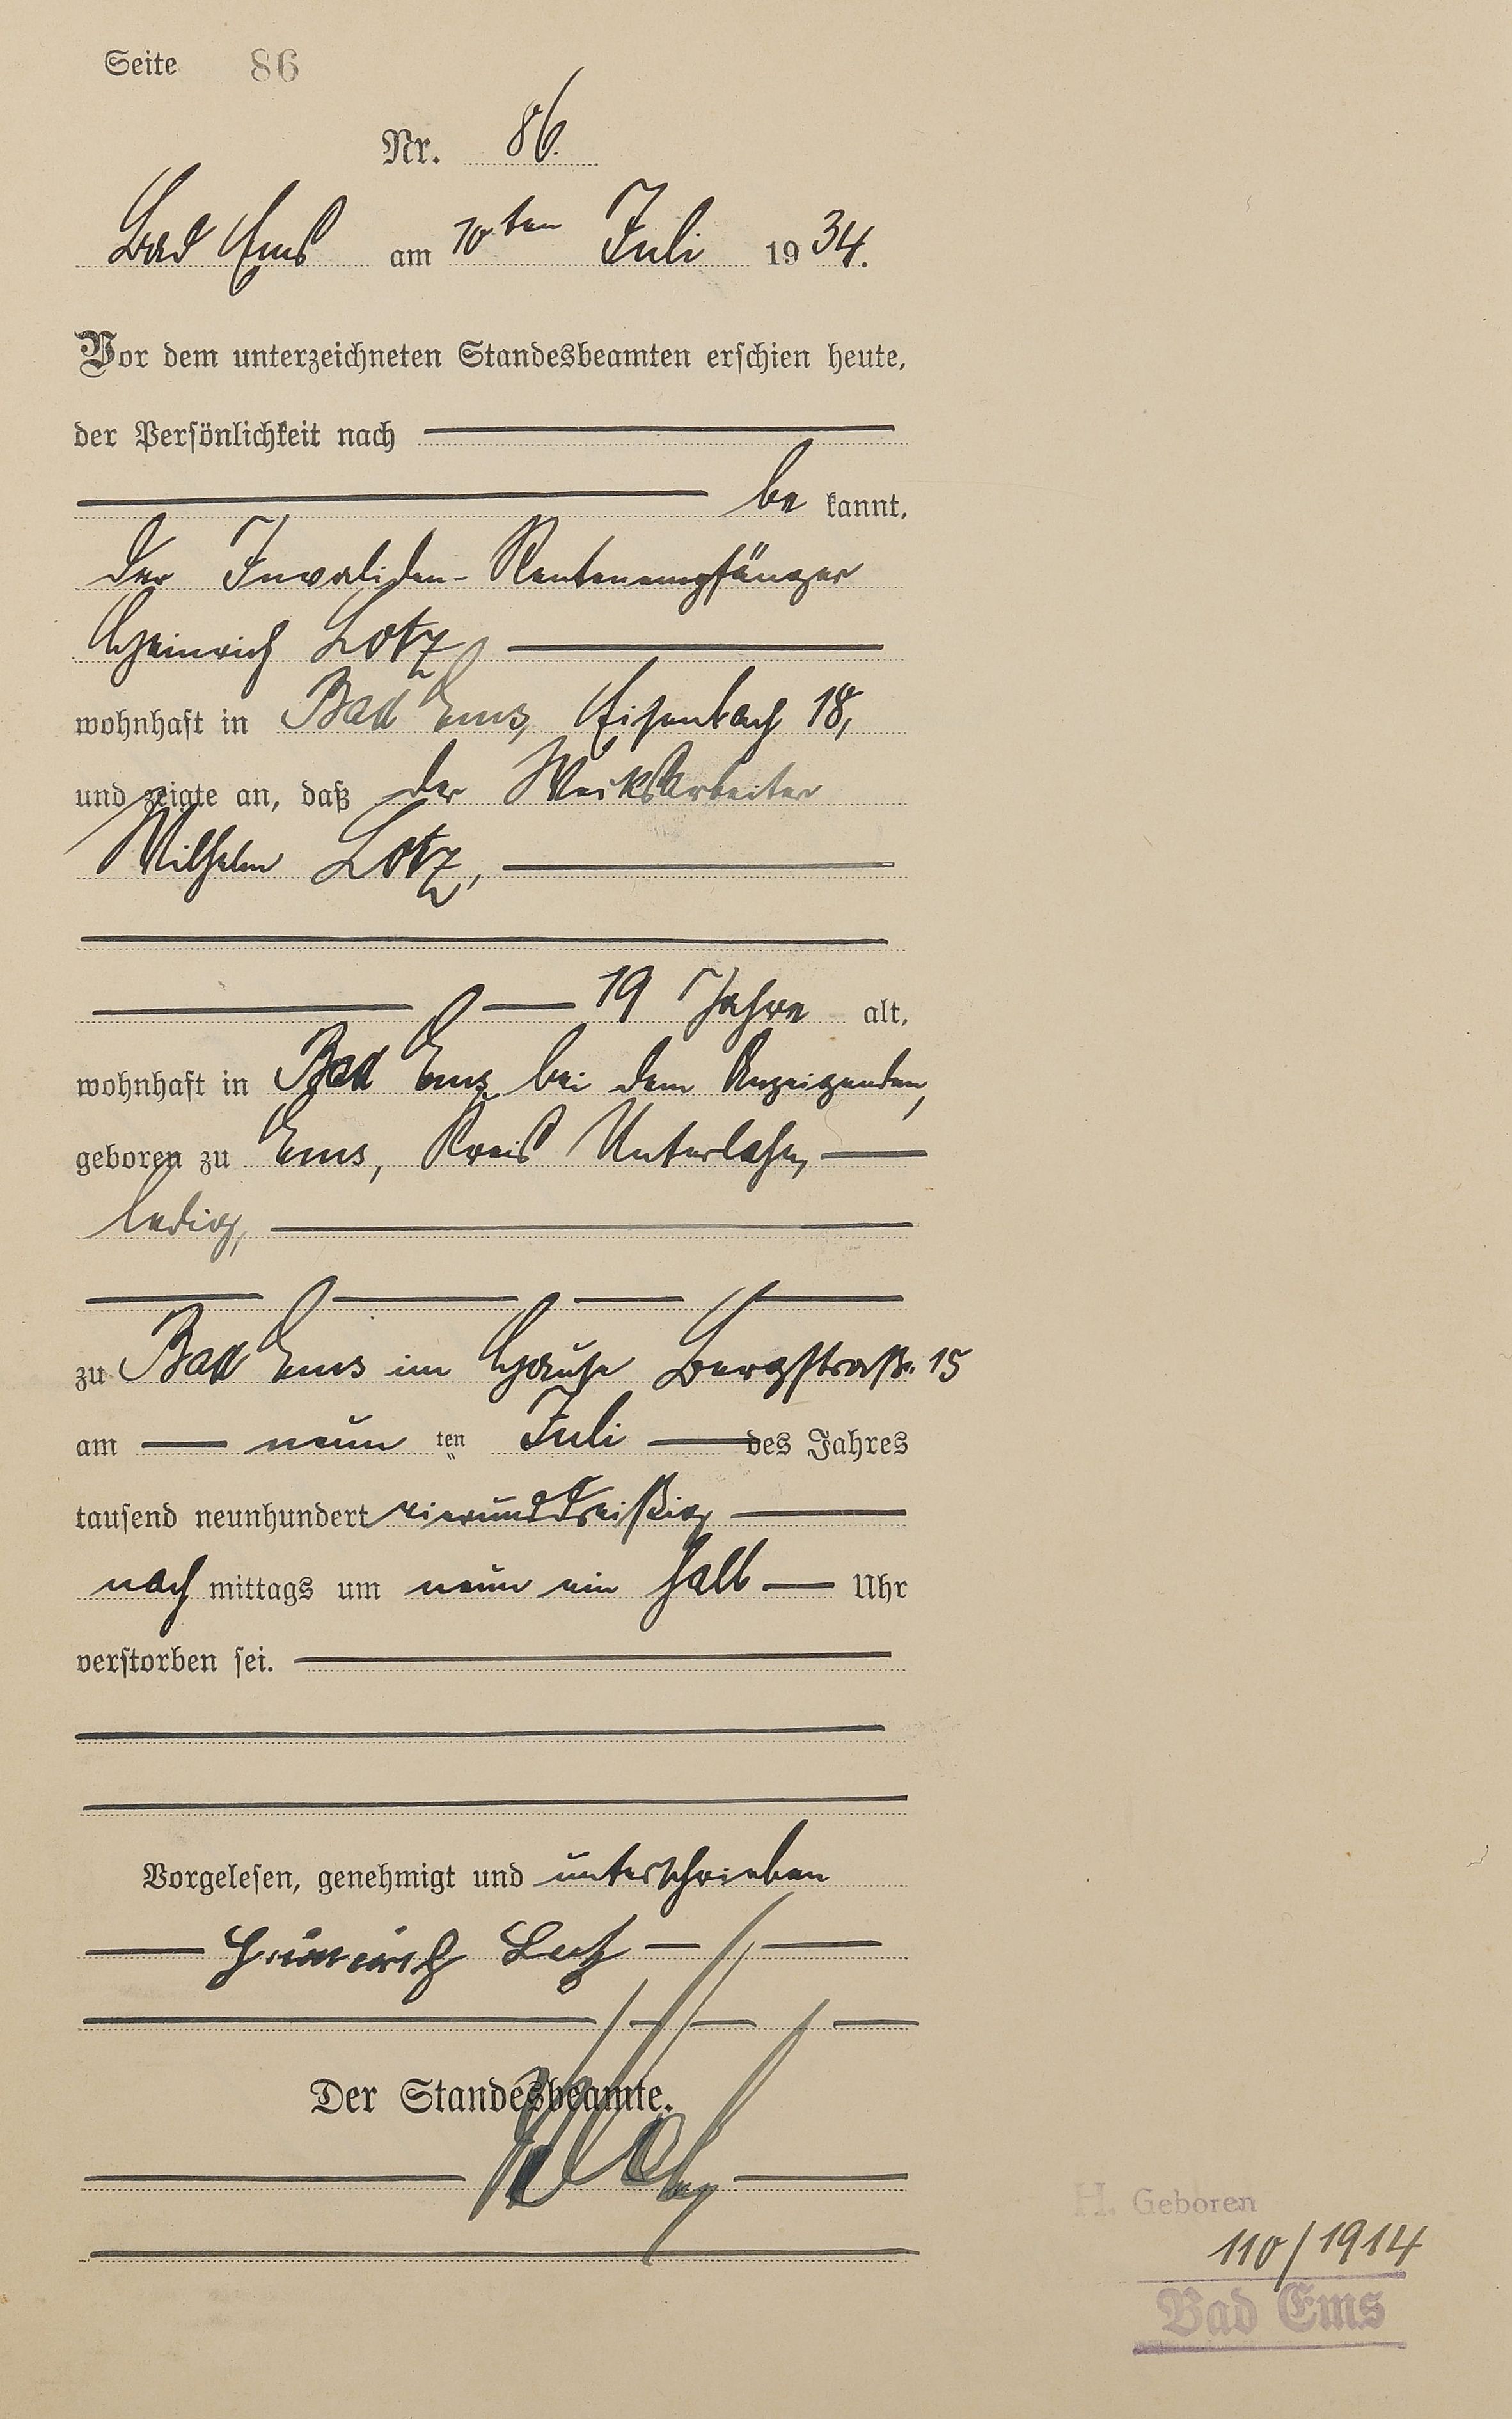 Seite 86
Nr. 86.
Bad Ems am 10ten Juli 1934.
Vor dem unterzeichneten Standesbeamten erschien heute,
der Persönlichkeit nach
be kannt,
der Invaliden-Rentenempfänger
Heinrich Lotz,
wohnhaft in Bad Ems, Eisenbach 18,
und zeigte an, daß der Werksarbeiter
Wilhelm Lotz,
19 Jahre alt,
wohnhaft in Bad Ems bei dem Anzeigenden,
geboren zu Ems, Kreis Unterlahn,
ledig,
zu Bad Ems im Hause Bergstraße 15
am neun ten Juli des Jahres
tausend neunhundert vierunddreißig
nach mittags um neun ein halb Uhr
verstorben sei.
Vorgelesen, genehmigt und unterschrieben
Heinrich Lotz
Der Standesbeamte.
H. Geboren
110/1914
Bad Ems